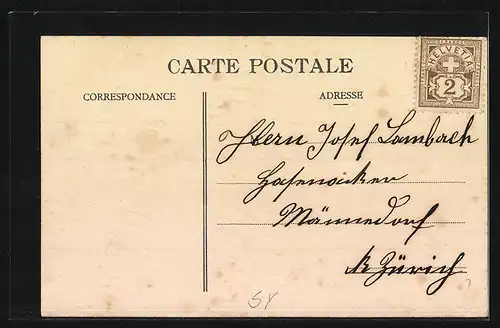 CARTE POSTALE
CORRESPONDANCE
ADRESSE
HELVETIA
2
Herrn Josef Lambach
Hasenacker
Männedorf
Zürich